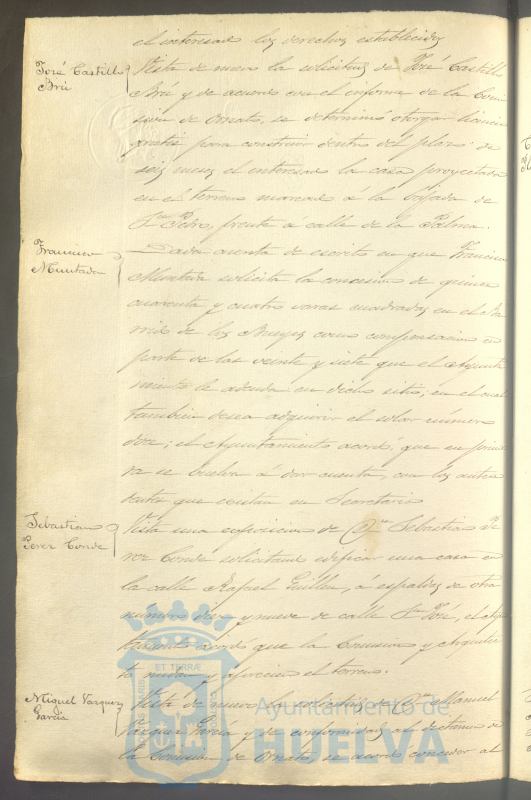 el interesado los derechos establecidos
José Castillo
Brú
Vista de nuevo la solicitud de José Castillo
Brú y de acuerdo con el informe de la Comi
sion de Ornato, se determinó otorgar licencia
gratis para construir dentro del plazo de
seis meses el interesado la casa proyectada
en el terreno marcado á la bajada de
Sn. Pedro, frente á calle de la Palma.
Francisco
Muntada
Dada cuenta de escrito en que Francisco
Muntada solicita la concesion de quince
cuarenta y cuatro varas cuadradas en el Ba
rrio de los Bueyes como compensacion en
parte de las veinte y siete que el Ayunta
miento le adeuda en dicho sitio; en el cual
tambien desea adquirir el solar número
doce; el Ayuntamiento acordó, que en prime
ra se vuelva á dar cuenta, con los antece
dentes que existan en Secretaria
Sebastian
Perez Conde
Vista una esposicion de Dn. Sebastian Pe
rez Conde solicitando edificar una casa en
la calle Rafael Guillen, á espaldas de otra
número diez y nueve de calle Sn. José, el Ayun
tamiento acordó que la Comision y Arquitec
to midan y aprecien el terreno.
Miguel Vazquez
Garcia
Vista de nuevo la solicitud de Dn. Manuel
Vazquez Garcia y de conformidad al dictamen de
la Comision de Ornato, se acordó conceder al
ET TERRÆ
Ayuntamiento de
HUELVA